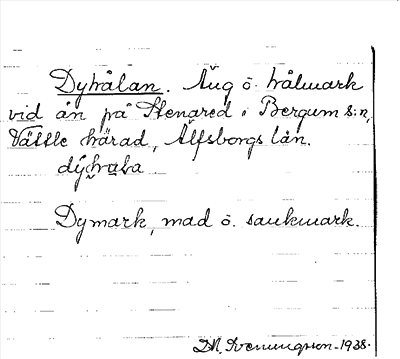 Dyhålan. Äng o. hålmark
vid ån på Stenared i Bergum s:n,
Vättle härad, Älfsborgs län.
dýhala
Dymark, mad o. sankmark.
Svenungsson - 1938.